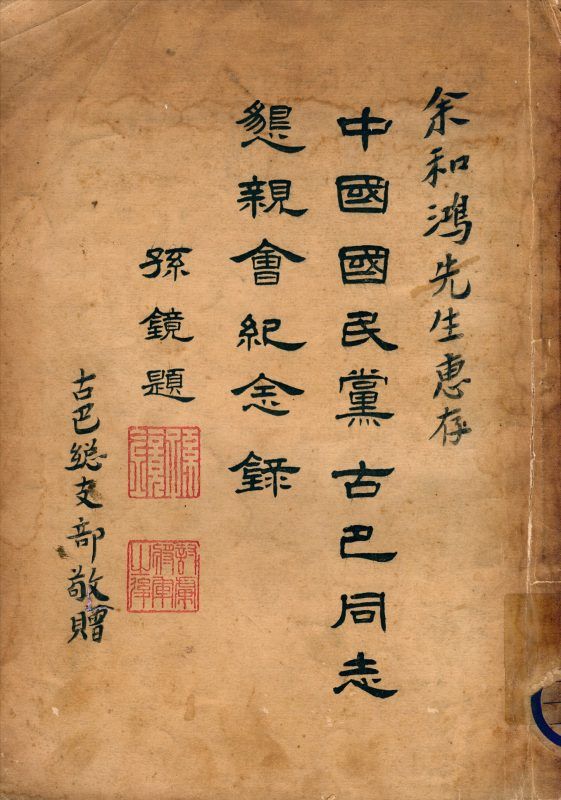 余和鴻先生惠存
中國國民黨古巴同志
懇親會紀念錄
孫鏡題
古巴總支部敬贈